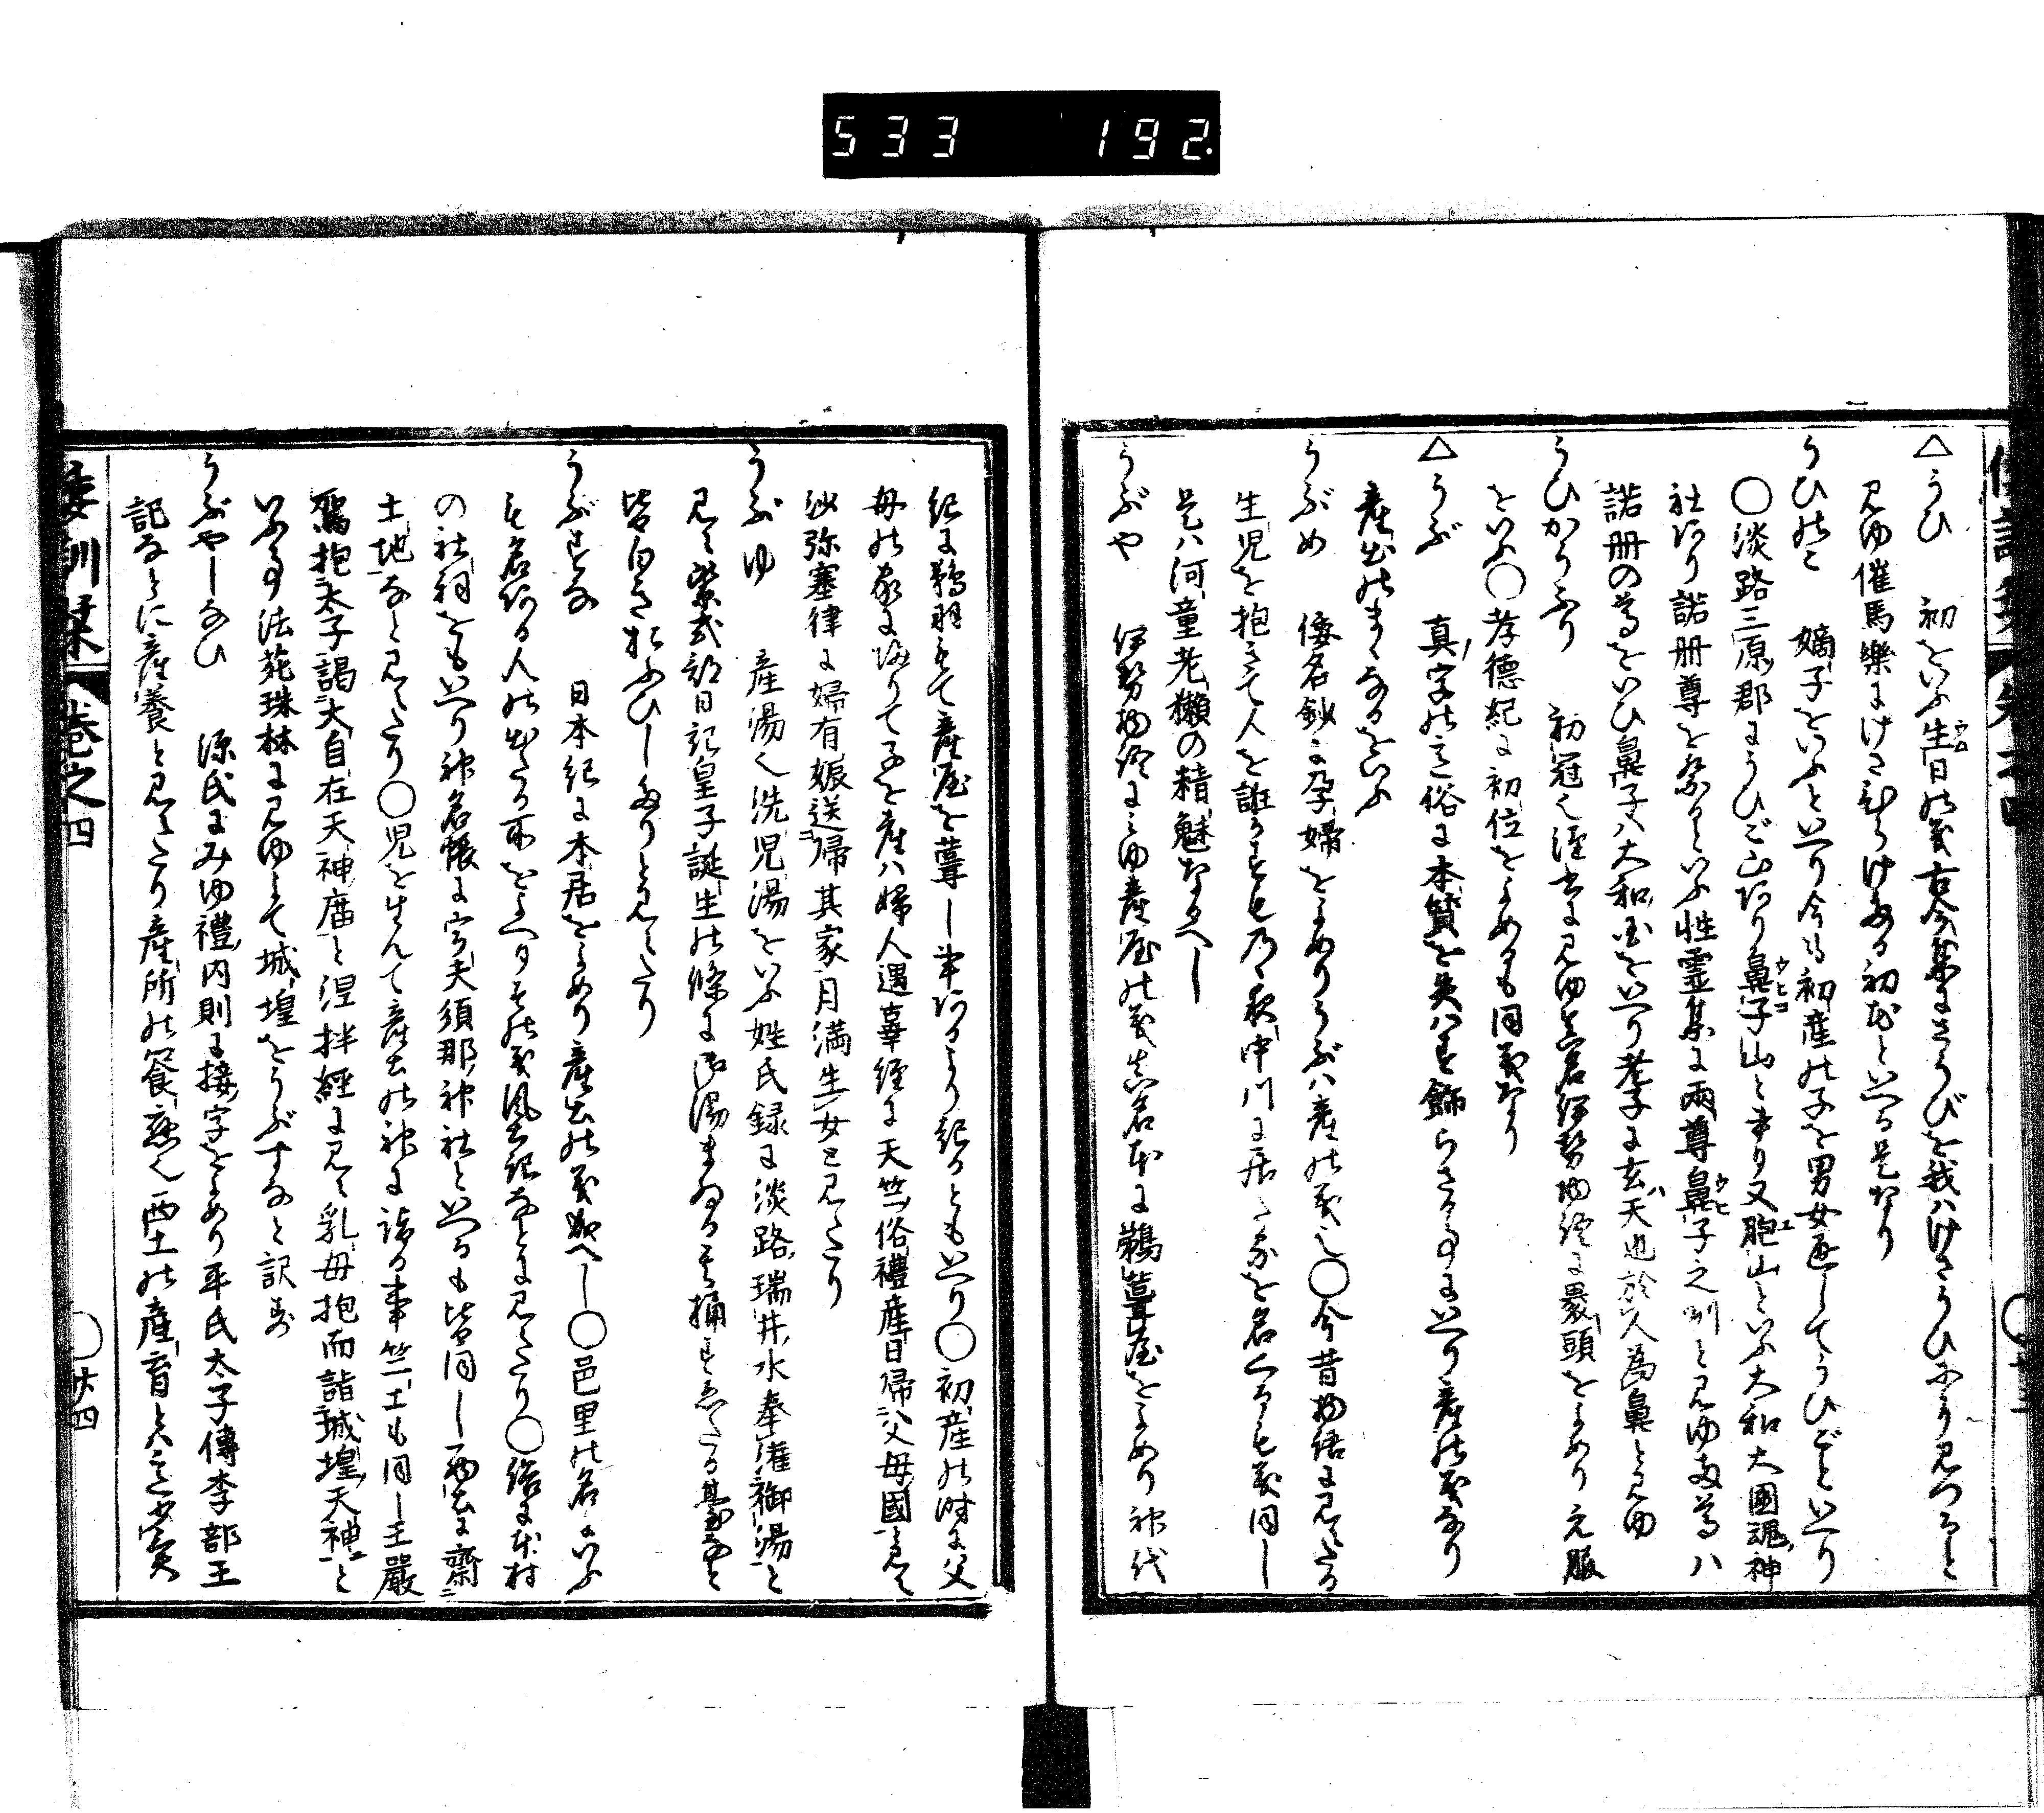 533 192.
△うひ 初をいふ生日の義古今集にさうびを我はけさうひにそ見つると
見ゆ催馬樂にけさむらけある初花といへる是なり
うひのこ 嫡子をいふといへり今も初産の子を男女通してうひごといへり
○淡路三原郡にうひご山あり鼻子山とかけり又胞山といふ大和大國魂神
社あり諾冊尊を祭るといふ性霊集に兩尊鼻子之州と見ゆ両尊ハ
諾冊の尊をいひ鼻子ハ大和国をいへり老子に玄天也於人為鼻と見ゆ
うひかうふり 初冠也漢書に見ゆ真名伊勢物語に褁頭をよめり元服
をいふ○孝徳紀に初位をよめるも同義なり
△うぶ 真字の意俗に本質を失はす飾らさる事にいへり産の義なり
産出のまゝなるをいふ
うぶめ 倭名鈔に孕婦をよめりうぶハ産の義也○今昔物語に見えたる
生児を抱きて人を誑かすも乃ち夜中川に居たるを名くるも義同し
是ハ河童老獺の精魅なるへし
うぶや 伊勢物語にみゆ産屋の義真名本に鵜葺屋をよめり神代
紀に鵜羽もて産屋を葺し事あるより起るともいへり○初産の時に父
母の家に海りて子を産ハ婦人遇辜經に天竺俗禮産日帰父母國と見え
沙弥塞律に婦有娠送帰其家月満生女と見えたり
うぶゆ 産湯也洗児湯をいふ姓氏録に淡路瑞井水奉灌御湯と
見え紫式部日記皇子誕生の條に御湯まゐる其桶すゑたる臺なと
皆白きおほひしたりと見えたり
うぶすな 日本紀に本居をよめり産出の義成へし○邑里の名にいふ
も名ある人の出たる所をいへりその義風土記なとに見えたり○俗に本村
の社祠をもいへり神名帳に宇夫須那神社といへるも皆同し西土に齋
土地なと見えたり○児を生んて産土の神に詣る事竺土も同し王嚴
駕抱太子謁大自在天神廟と涅拌經に見え乳母抱而詣城隍天神と
いふ事法苑珠林に見ゆよて城隍をうぶすなと訳す
うぶやしなひ 源氏にみゆ禮内則に接字をよめり平氏太子傳李部王
記なとに産養と見えたり産所の饗應也西土の産育とハ意少異
倭訓栞 巻之四 ○廿四